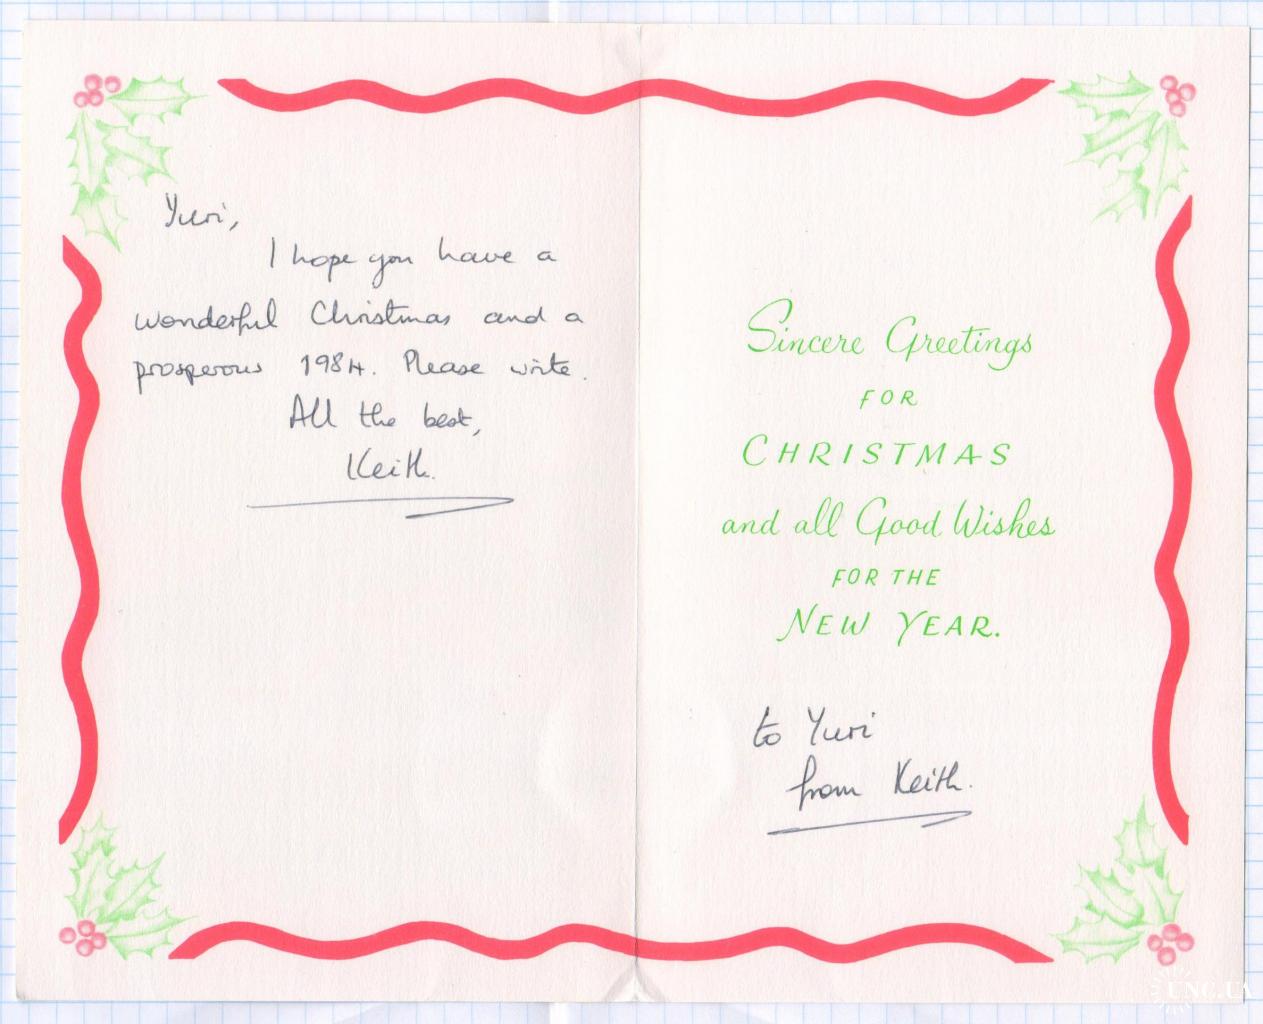 Yuri,
I hope you have a
wonderful Christmas and a
prosperous 1984. Please write.
All the best,
Keith.
Sincere Greetings
FOR
CHRISTMAS
and all Good Wishes
FOR THE
NEW YEAR.
to Yuri
from Keith.
UNC.UA